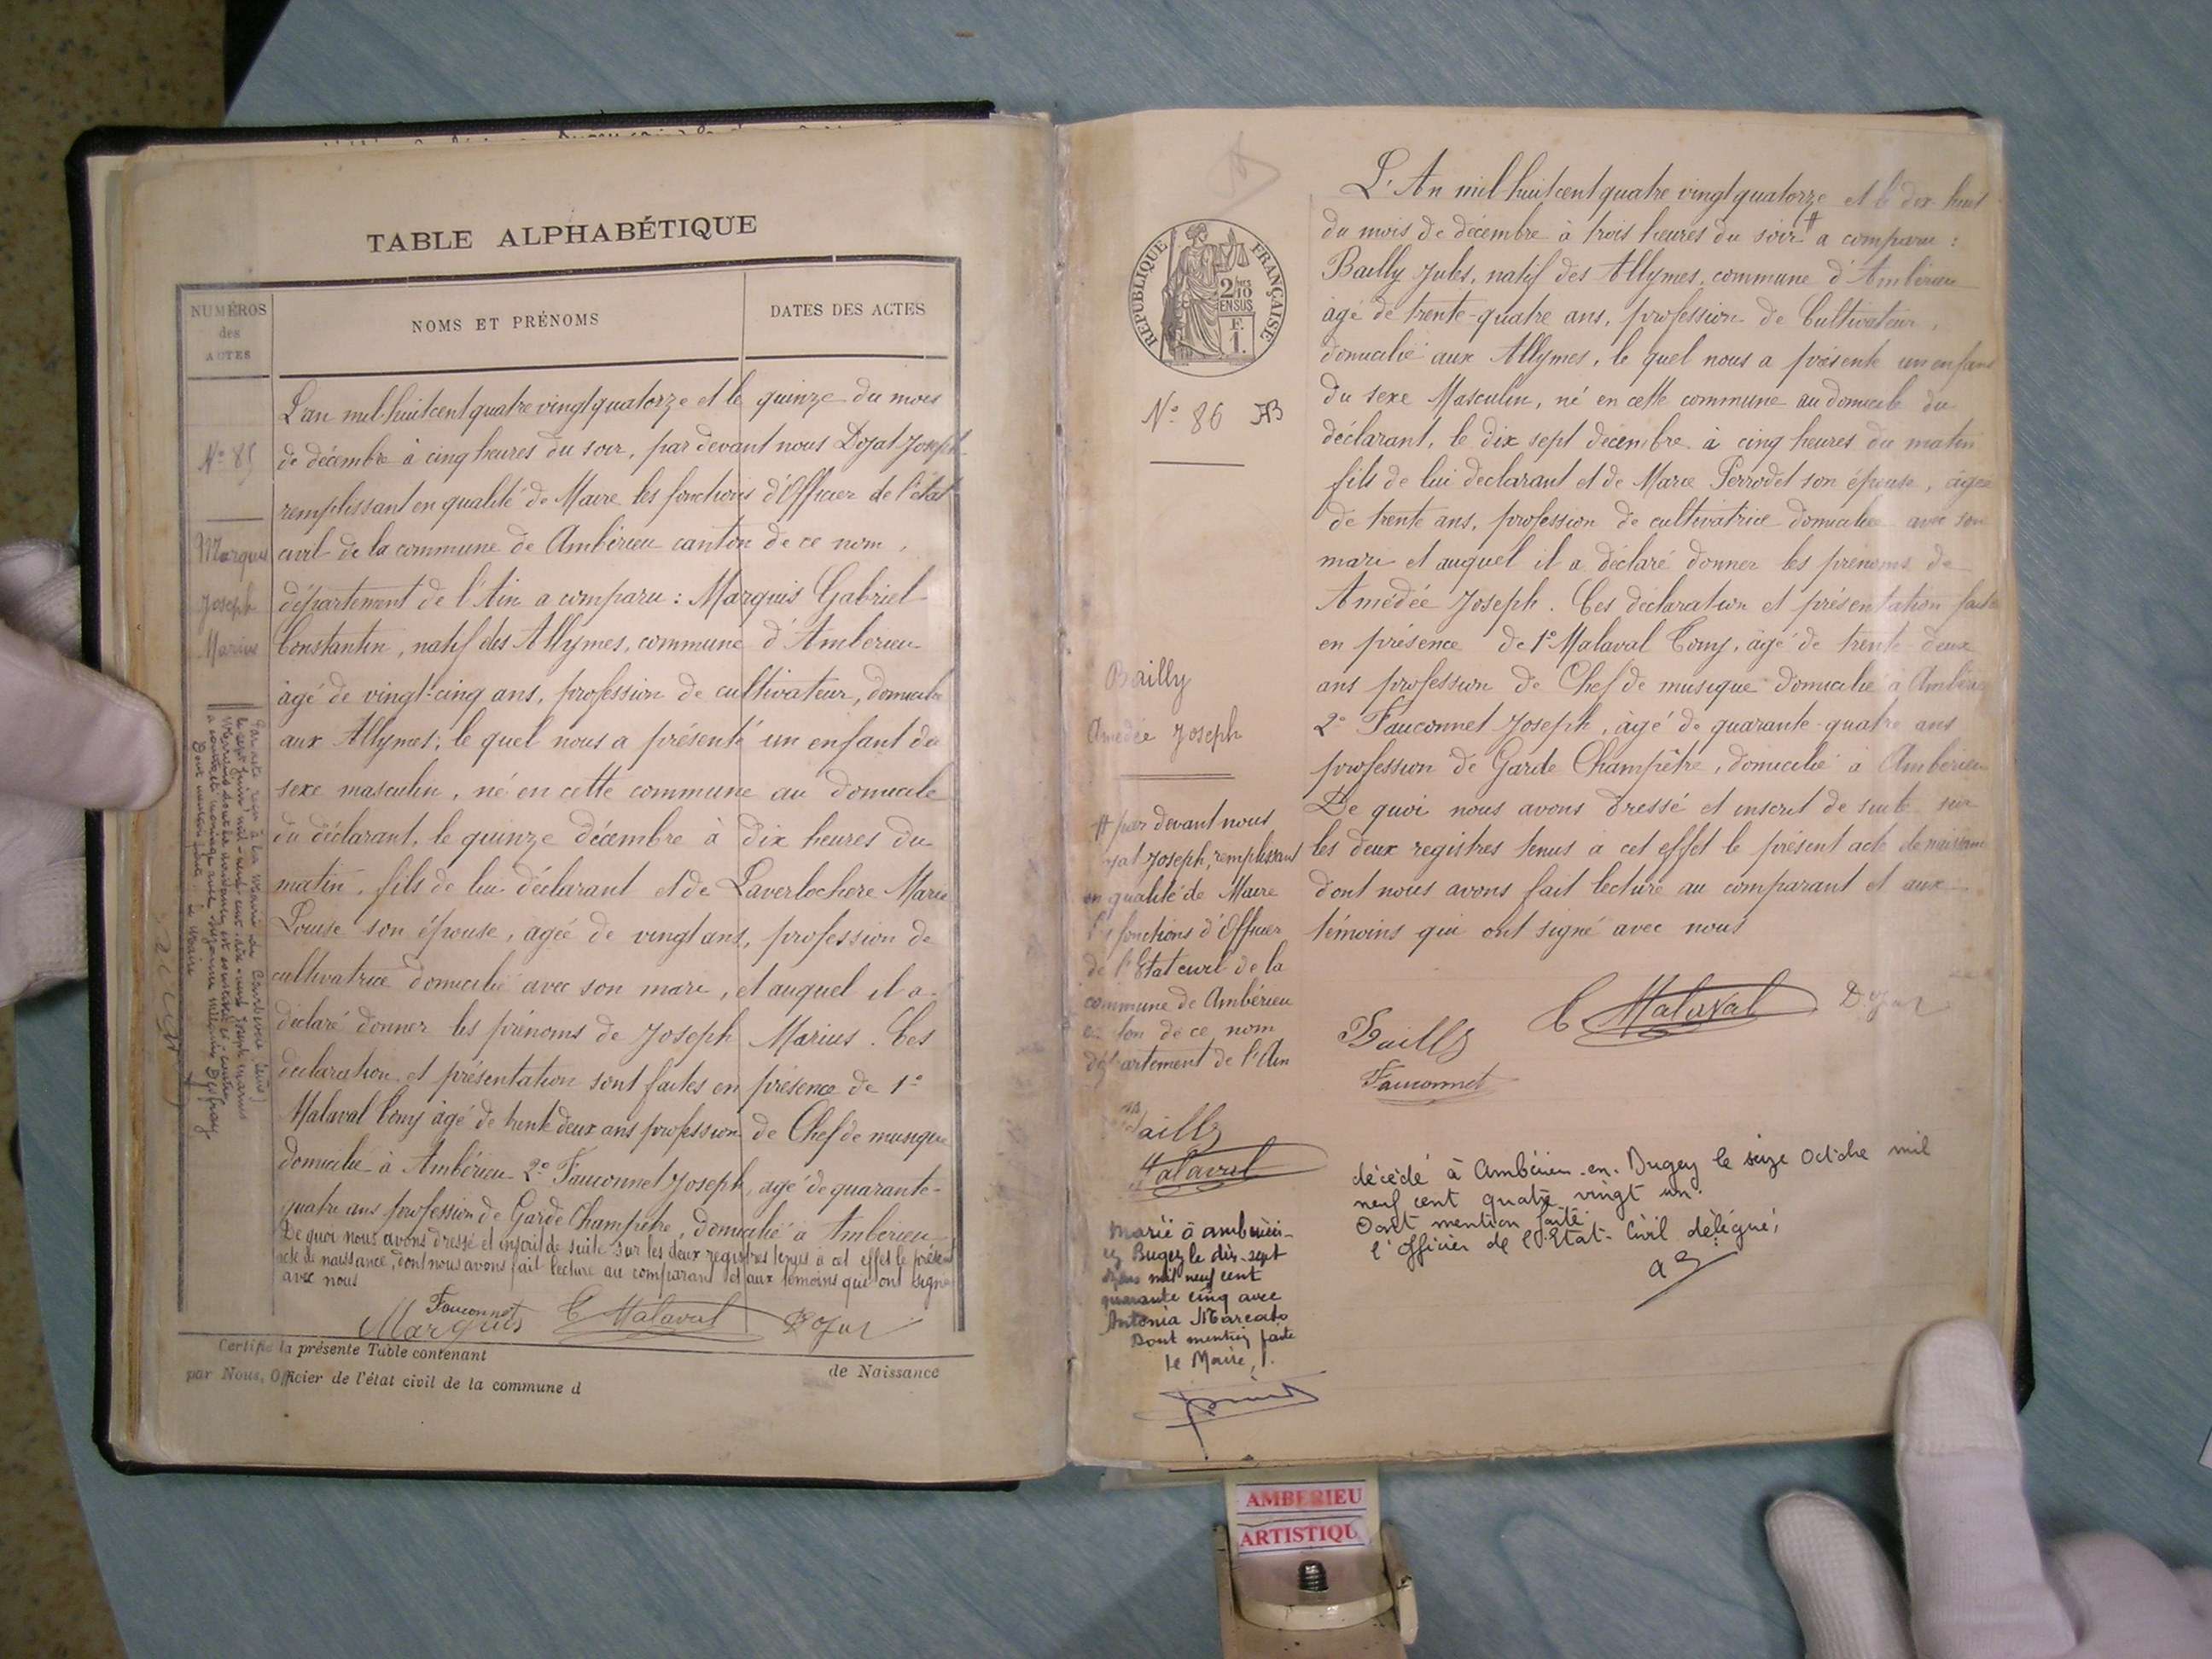 TABLE ALPHABÉTIQUE
NUMÉROS
des
ACTES
NOMS ET PRÉNOMS
DATES DES ACTES
L'an mil huit cent quatre vingt quatorze et le quinze du mois
de décembre à cinq heures du soir, par devant nous Dojat Joseph
remplissant en qualité de Maire les fonctions d'Officier de l'état
civil de la commune de Ambérieu canton de ce nom,
département de l'Ain a comparu : Marquis Gabriel
Constantin, natif des Allymes, commune d'Ambérieu
âgé de vingt-cinq ans, profession de cultivateur, domicilié
aux Allymes, le quel nous a présenté un enfant du
sexe masculin, né en cette commune au domicile
du déclarant, le quinze décembre à dix heures du
matin, fils de lui déclarant et de Laverlochere Marie
Louise son épouse, agée de vingt ans, profession de
cultivatrice domicilié avec son mari, et auquel il a
déclaré donner les prénoms de Joseph Marius. Ces
déclaration et présentation sont faites en présence de 1°
Malaval Cony âgé de trente deux ans profession de Chef de musique
domicilié à Ambérieu 2° Fauconnet Joseph, agé de quarante-
quatre ans profession de Garde Champêtre, domicilié à Ambérieu
De quoi nous avons dressé et inscrit de suite sur les deux registres tenus à cet effet le présent
acte de naissance, dont nous avons fait lecture au comparant et aux témoins qui ont signé
avec nous
Fauconnet
Marquis C Malaval Dojat
N° 85
Marquis
Joseph
Marius
Certifié la présente Table contenant
de Naissance
par Nous, Officier de l'état civil de la commune d
RÉPUBLIQUE FRANÇAISE
2/10
EN SUS
F.
1.
N° 86 AB
Bailly
Amédée Joseph
# par devant nous
Joseph, remplissant
en qualité de Maire
fonctions d'Officier
de l'Etat civil de la
commune de Ambérieu
canton de ce nom
département de l'Ain
Bailly
Malaval
Marié à Ambérieu-
en Bugey le dix-sept
mil neuf cent
quarante cinq avec
Antonia Marcato
Dont mention faite
le Maire,
L'An mil huit cent quatre vingt quatorze et le dix huit
du mois de décembre à trois heures du soir # a comparu :
Bailly Jules, natif des Allymes, commune d'Ambérieu
âgé de trente-quatre ans, profession de Cultivateur,
domicilié aux Allymes, le quel nous a présenté un enfant
du sexe Masculin, né en cette commune au domicile du
déclarant, le dix sept décembre à cinq heures du matin
fils de lui déclarant et de Marie Perrodet son épouse, âgée
de trente ans, profession de cultivatrice domiciliée avec son
mari et auquel il a déclaré donner les prénoms de
Amédée Joseph. Ces déclaration et présentation faites
en présence de 1° Malaval Cony, âgé de trente-deux
ans profession de Chef de musique domicilié à Ambérieu
2° Fauconnet Joseph, âgé de quarante-quatre ans
profession de Garde Champêtre, domicilié à Ambérieu
De quoi nous avons dressé et inscrit de suite sur
les deux registres tenus à cet effet le présent acte de naissance
dont nous avons fait lecture au comparant et aux
témoins qui ont signé avec nous
Bailly C Malaval Dojat
Fauconnet
décédé à Ambérieu-en-Bugey le seize Octobre mil
neuf cent quatre vingt un.
Dont mention faite.
l'Officier de l'Etat-Civil délégué,
AMBERIEU
ARTISTIQU